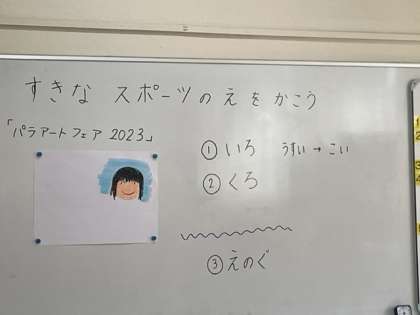 すきな スポーツの えを かこう
「パラアートフェア 2023」
① いろ うすい → こい
② くろ
③ えのぐ